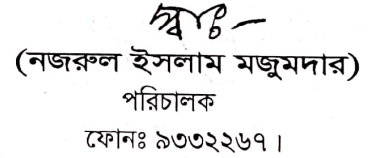 স্বাঃ-
(নজরুল ইসলাম মজুমদার)
পরিচালক
ফোনঃ ৯৩৩২২৬৭।